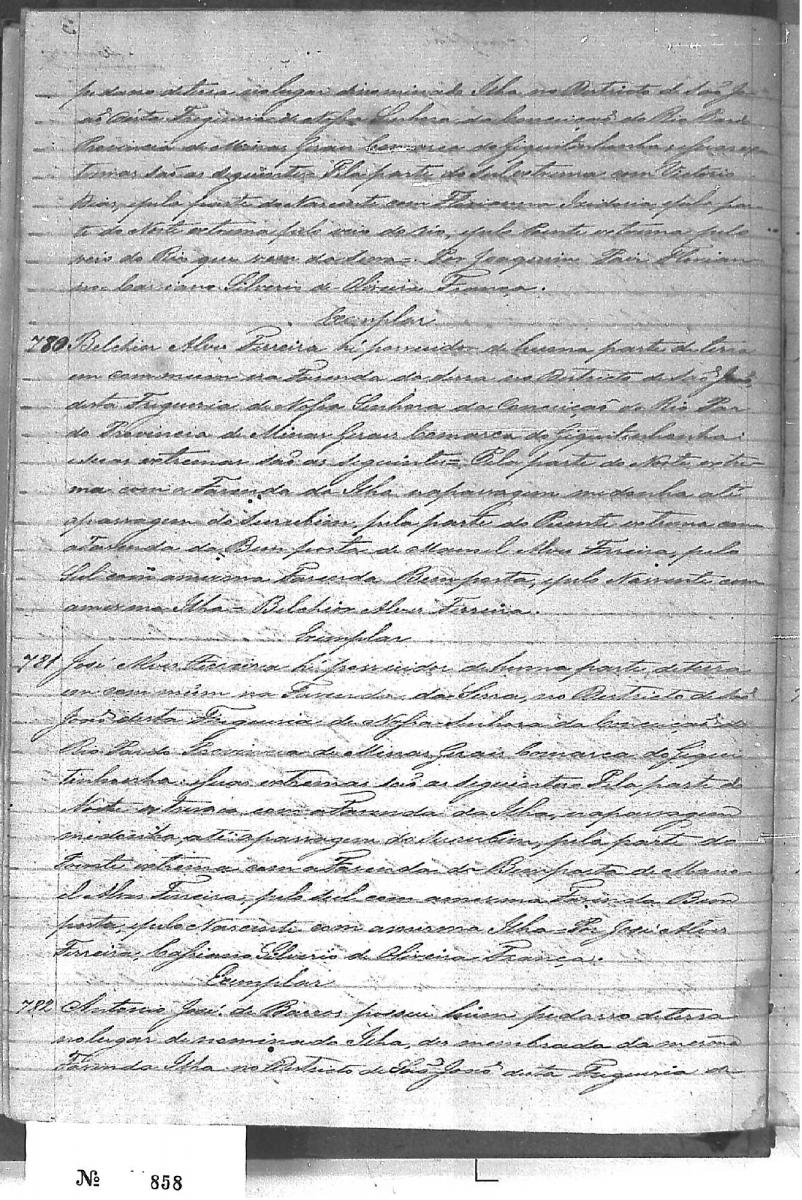 pedasso de terra no lugar dinominado Ilha no Destricto de Saõ Jo-
aõ desta Freguezia de Nossa Senhora da Conceiçaõ do Rio Pardo
Provincia de Minas Gerais Comarca do Giquitinhonha, e suas ex-
tremas saõ as seguintes = Pela parte do Sul extrema com Victorio
Dias, e pela parte do Nascente com Floriana Izidoria, e pela par-
te do Norte extrema pelo veio do rio, e pelo Puente extrema pelo
veio do Rio que vem da Serra = Por Joaquim Florian-
no Cassiano Silverio de Oliveira França.
Exemplar
780 Belchior Alves Ferreira hé possuidor de huma parte de terra
em commum na Fazenda da Serra no Destricto de Saõ Joaõ
desta Freguezia de Nossa Senhora da Conceiçaõ do Rio Par-
do Provincia de Minas Gerais Comarca do Giquitinhonha:
e suas extremas saõ as seguintes = Pela parte do Norte extre-
ma com a Fazenda da Ilha na passagem medonha até
apassagem do Surubim, pela parte do Puente extrema com
a Fazenda da Bum porta de Manoel Alves Ferreira, pelo
Sul com amesma Fazenda Bumporta, e pelo Nascente com
amesma Ilha = Belchior Alves Ferreira.
Exemplar
781 José Alves Ferreira hé possuidor de huma parte de terra
em commum na Fazenda da Serra, no Destricto de Saõ
Joaõ desta Freguezia de Nossa Senhora da Conceiçaõ do
Rio Pardo Provincia de Minas Gerais Comarca do Giqui-
tinhonha: e suas extremas saõ as seguintes = Pela parte do
Norte extrema com a Fazenda da Ilha, na passagem
medonha, até apassagem do Surubim, pela parte do
Puente extrema com a Fazenda da Bumporta de Mano-
el Alves Ferreira, pelo Sul com amesma Fazenda Bum
porta, e pelo Nascente com amesma Ilha = Por José Alves
Ferreira, Cassiano Silverio de Oliveira França.
Exemplar
782 Antonio José de Barros possui hum pedasso de terra
no lugar denominado Ilha, desmembrada da mesma
Fazenda Ilha no Destricto de Saõ Joaõ desta Freguezia de
Nº 858